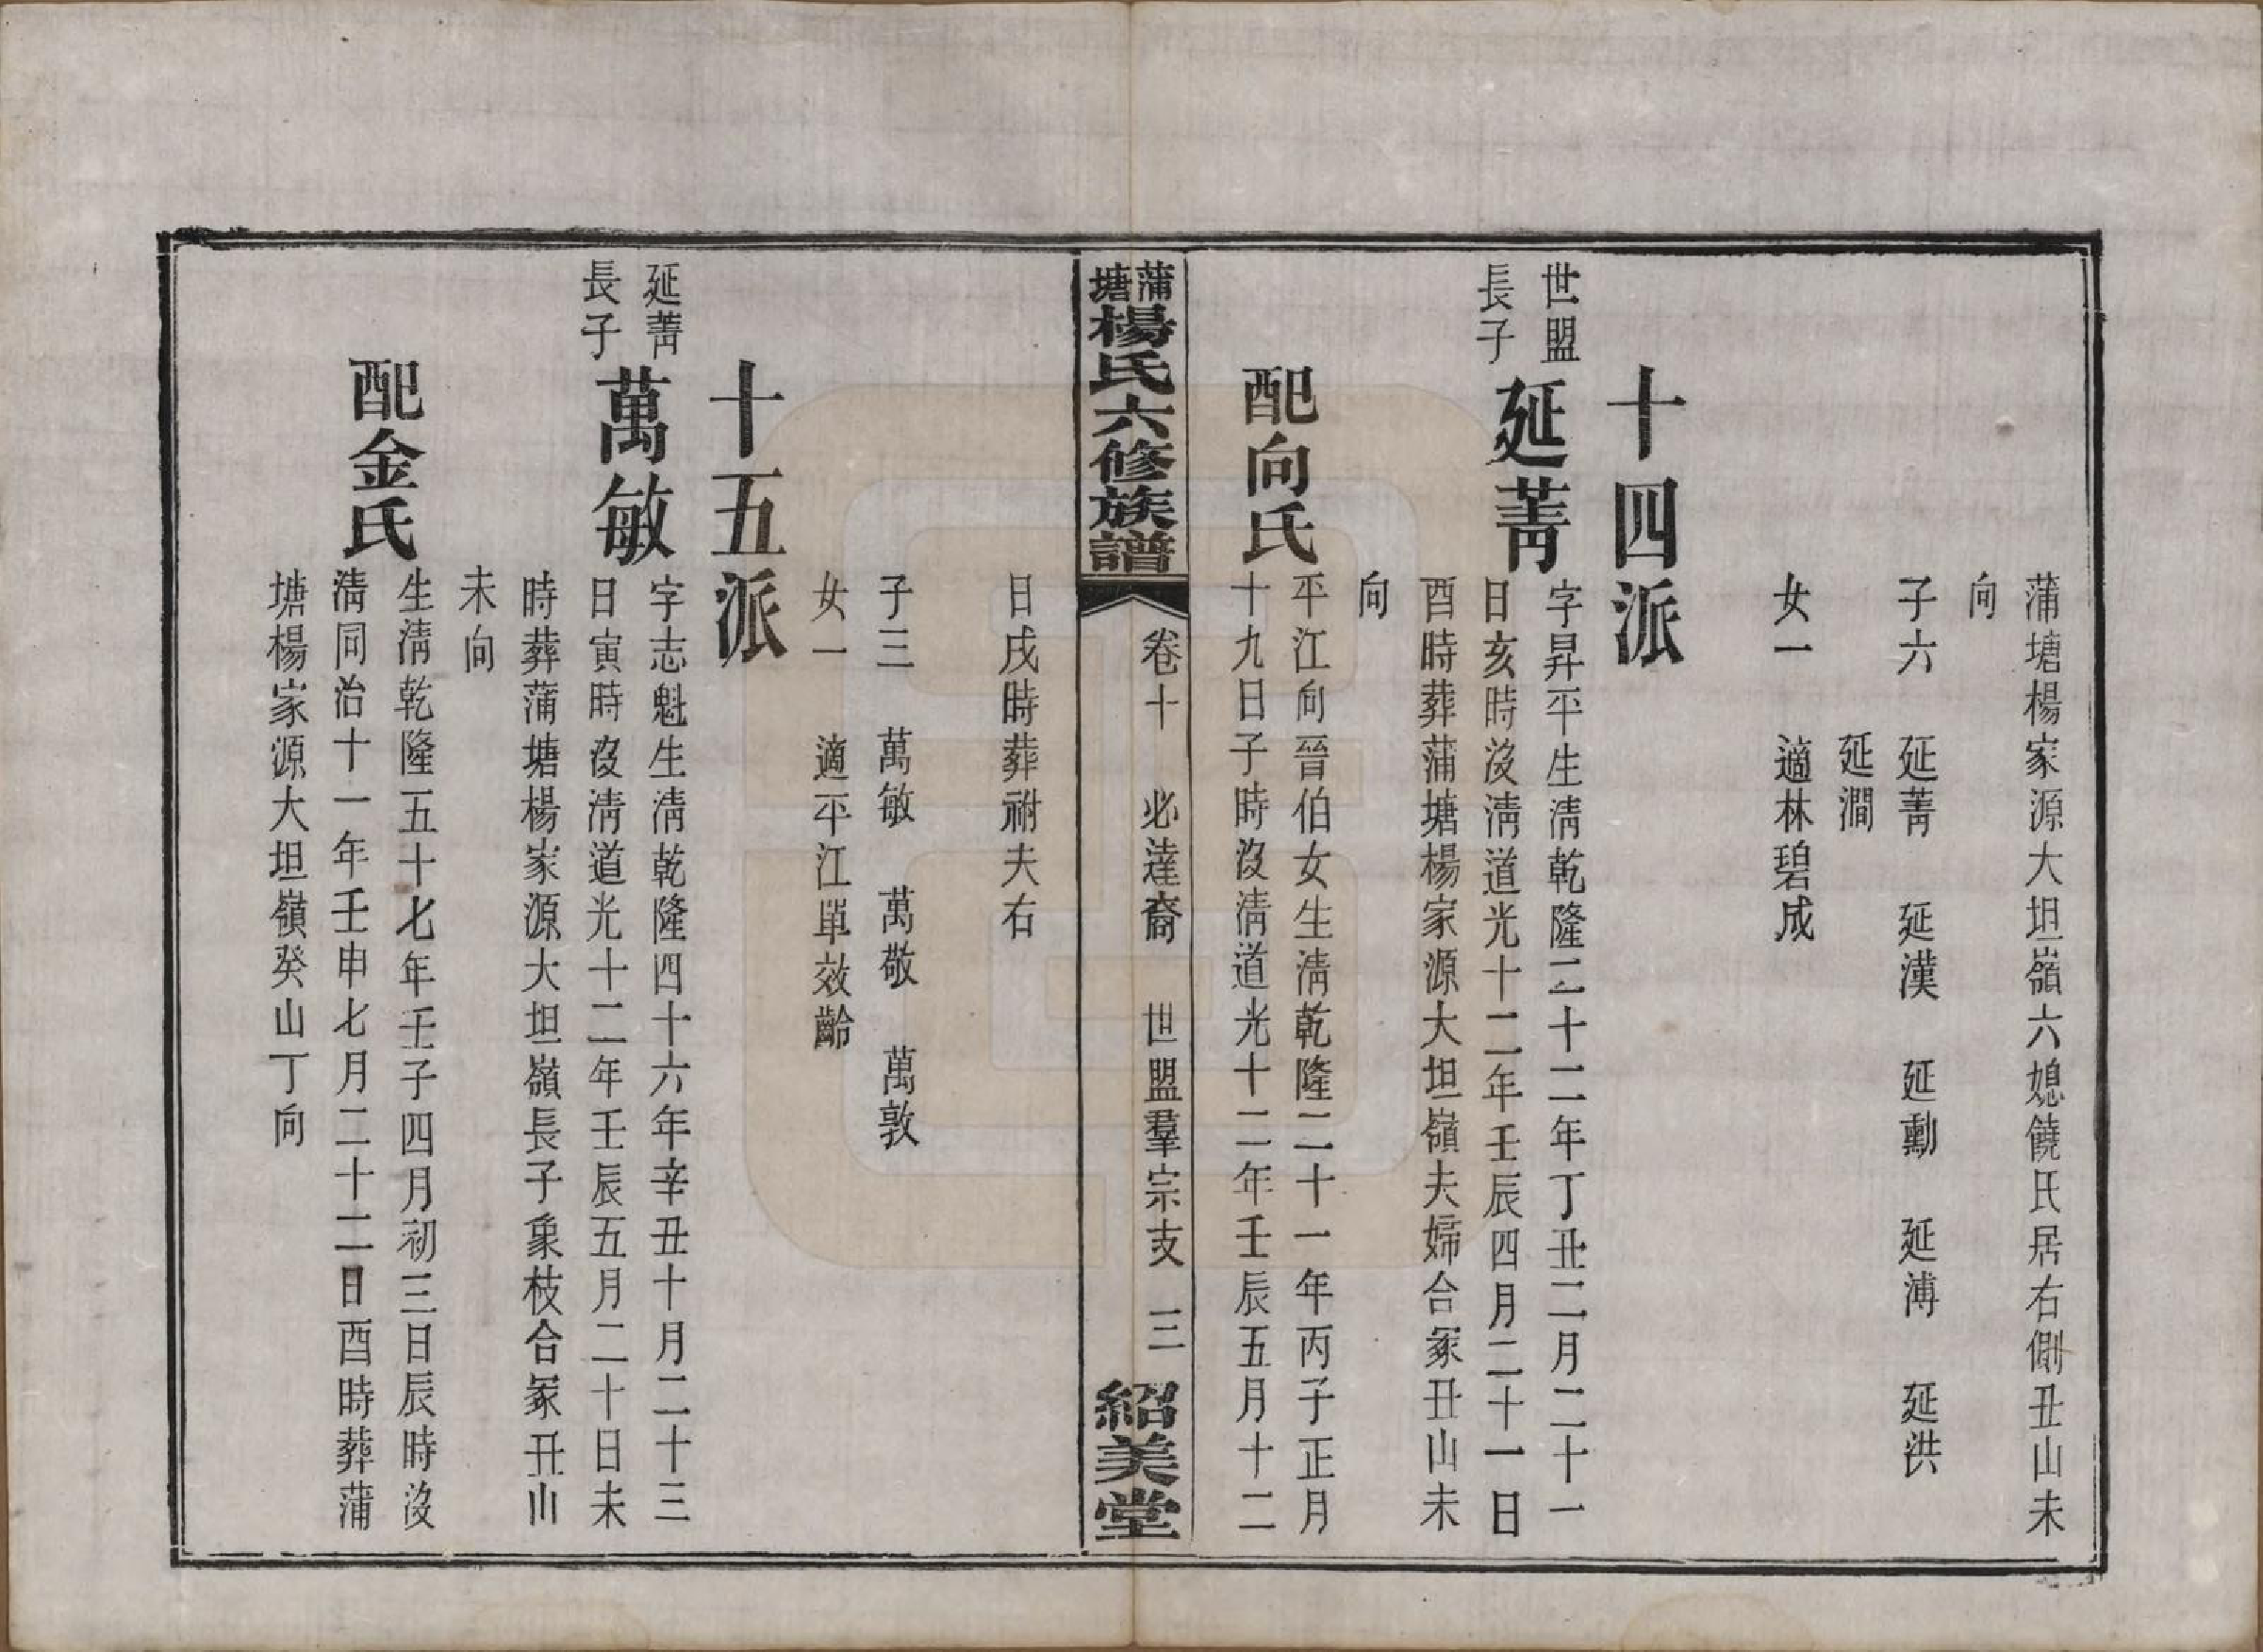 蒲塘楊家源大坦嶺六媳饒氏居右側丑山未
向
子六　延菁　延漢　延勳　延溥　延洪
延澗
女一　適林碧成
十四派
世盟
長子
延菁
字昇平生淸乾隆二十二年丁丑二月二十一
日亥時沒淸道光十二年壬辰四月二十一日
酉時葬蒲塘楊家源大坦嶺夫婦合冢丑山未
向
配向氏
平江向晉伯女生淸乾隆二十一年丙子正月
十九日子時沒淸道光十二年壬辰五月十二
蒲塘楊氏六修族譜　卷十　必達裔　世盟羣宗支　三　紹美堂
日戌時葬祔夫右
子三　萬敏　萬敬　萬敦
女一　適平江單效齡
十五派
延菁
長子
萬敏
字志魁生淸乾隆四十六年辛丑十月二十三
日寅時沒淸道光十二年壬辰五月二十日未
時葬蒲塘楊家源大坦嶺長子象枝合冢丑山
未向
配金氏
生淸乾隆五十七年壬子四月初三日辰時沒
淸同治十一年壬申七月二十二日酉時葬蒲
塘楊家源大坦嶺癸山丁向